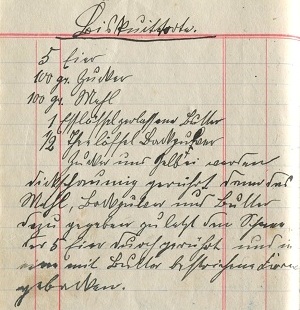 Biskuittorte.
5 Eier
100 gr. Zucker
100 gr. Mehl
1 Eßlöffel zerlassene Butter
1/2 Theelöffel Backpulver
Zucker und Gelbei werden
dickschaumig gerührt dann das
Mehl, Backpulver und Butter
dazu gegeben zuletzt den Schnee
der 5 Eier durchgerührt und in
eine mit Butter bestrichene Form
gebacken.